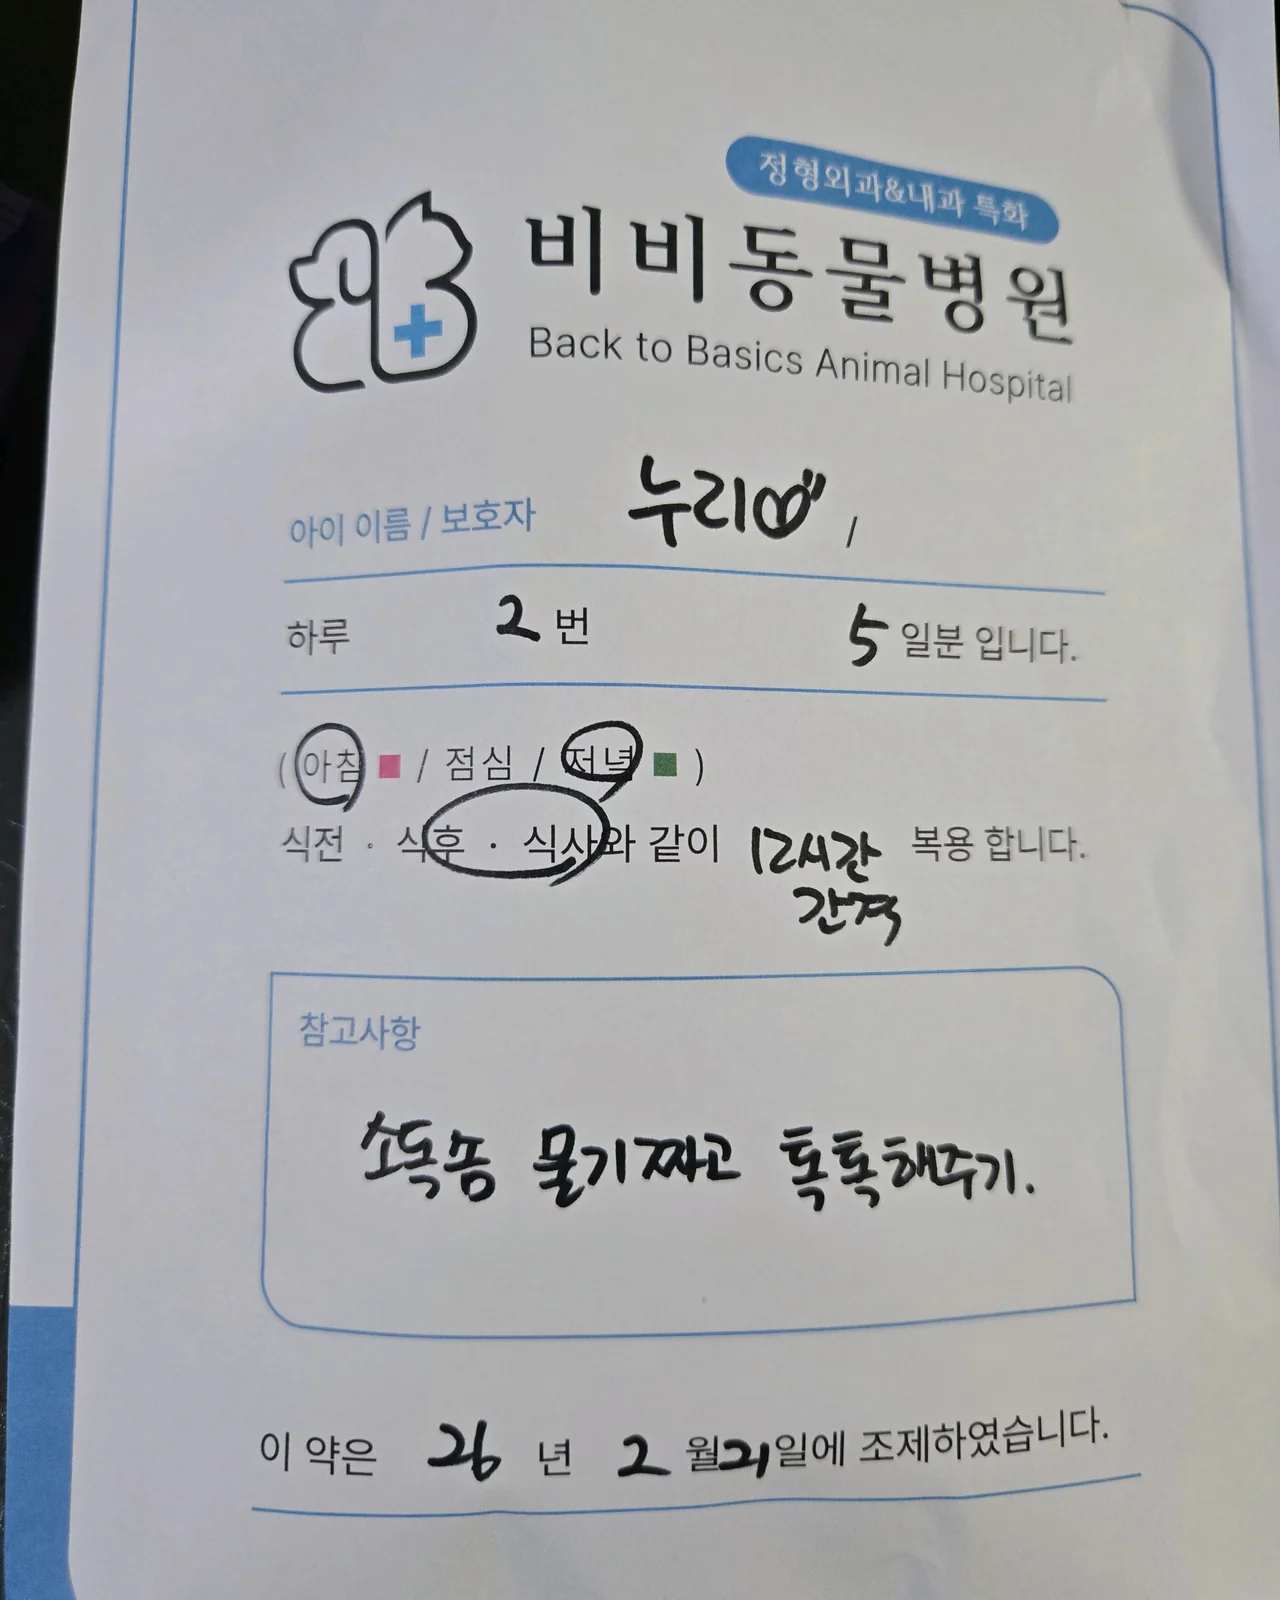 정형외과&내과 특화
비비동물병원
Back to Basics Animal Hospital
아이 이름 / 보호자 누리 /
하루 2 번 5 일분 입니다.
( 아침 / 점심 / 저녁 )
식전 · 식후 · 식사와 같이 12시간 복용 합니다.
간격
참고사항
소독솜 물기짜고 톡톡해주기.
이 약은 26 년 2 월 21 일에 조제하였습니다.